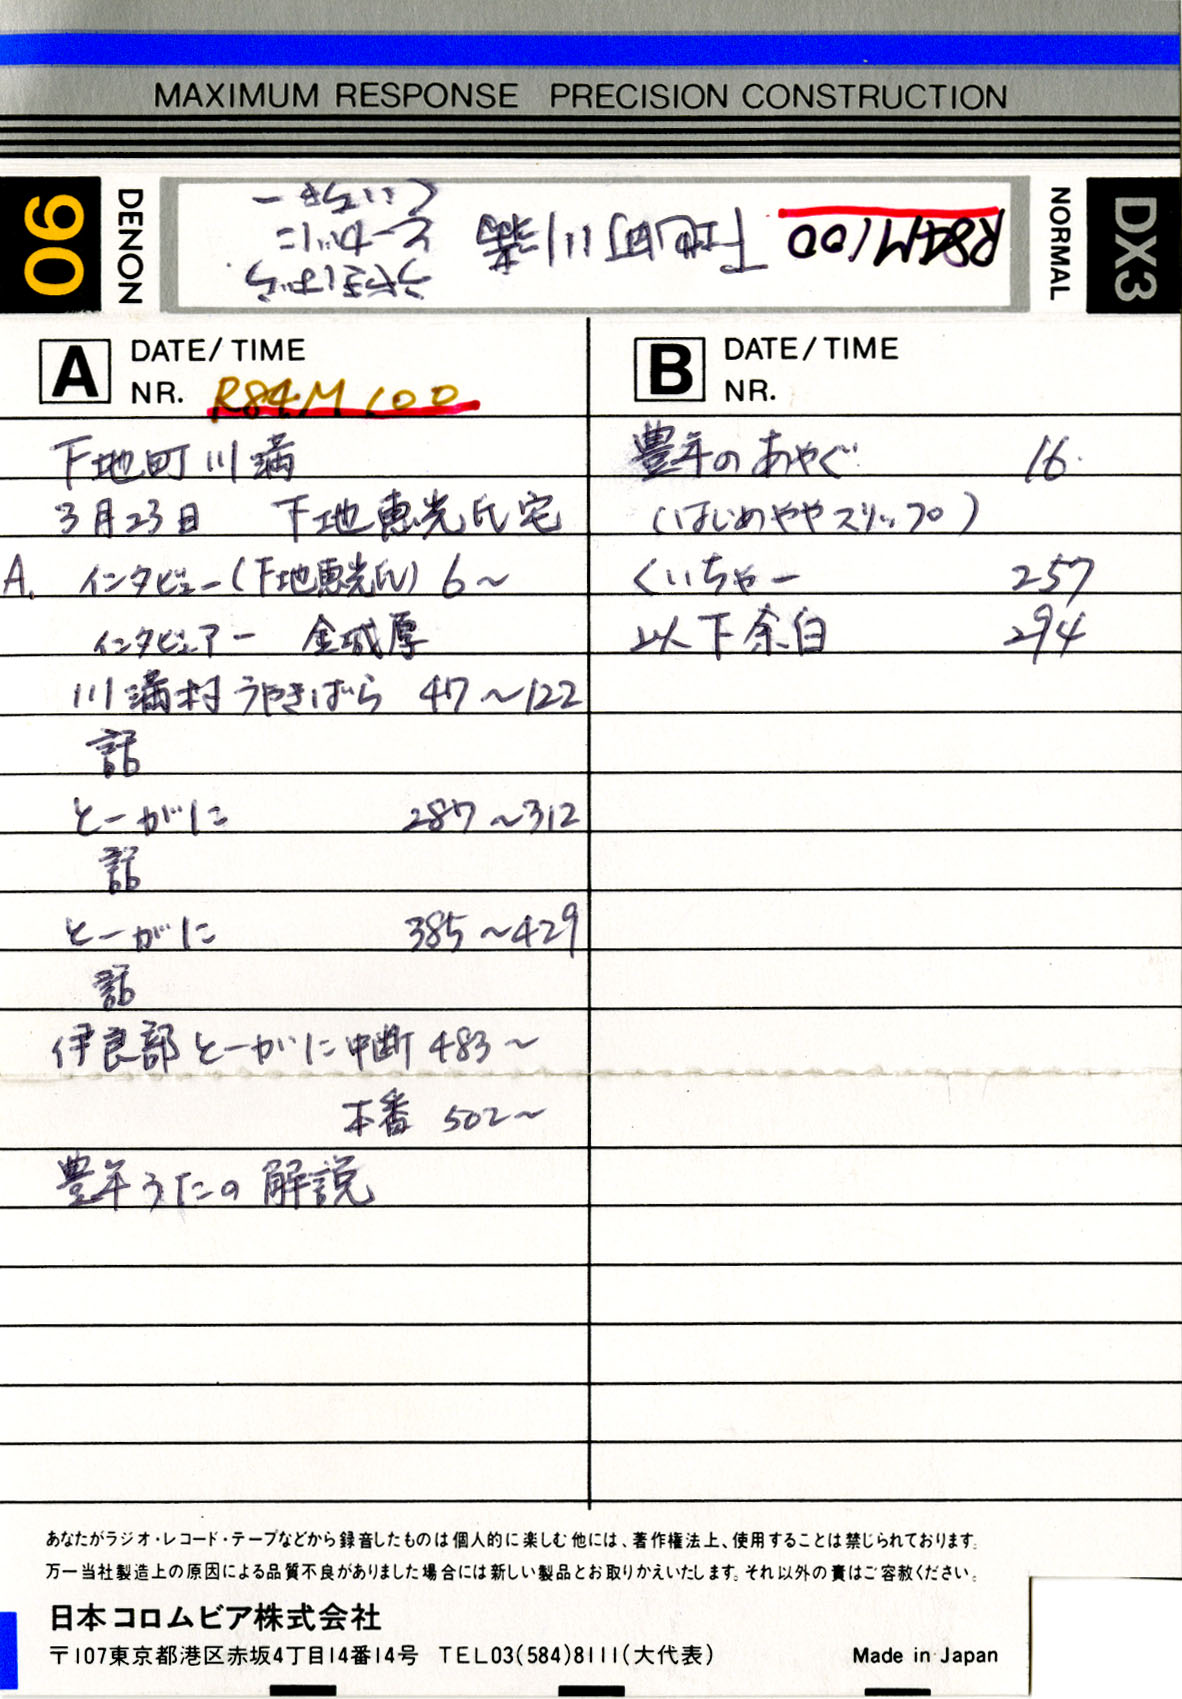 MAXIMUM RESPONSE PRECISION CONSTRUCTION
90
DENON
R84M100 下地町川満
うやきばら
とーがに
くいちゃー
NORMAL
DX3
A DATE/TIME
NR. R84M100
下地町川満
3月23日 下地恵光氏宅
A. インタビュー(下地恵光氏) 6〜
インタビュアー 金城厚
川満村うやきばら 47〜122
話
とーがに 287〜312
話
とーがに 385〜429
話
伊良部とーがに中断 483〜
本番 502〜
豊年うたの解説
B DATE/TIME
NR.
豊年のあやぐ 16.
(はじめややスリップ)
くいちゃー 257
以下余白 294
あなたがラジオ・レコード・テープなどから録音したものは個人的に楽しむ他には、著作権法上、使用することは禁じられております。
万一当社製造上の原因による品質不良がありました場合には新しい製品とお取りかえいたします。それ以外の責はご容赦ください。
日本コロムビア株式会社
〒107東京都港区赤坂4丁目14番14号 TEL03(584)8111(大代表)
Made in Japan